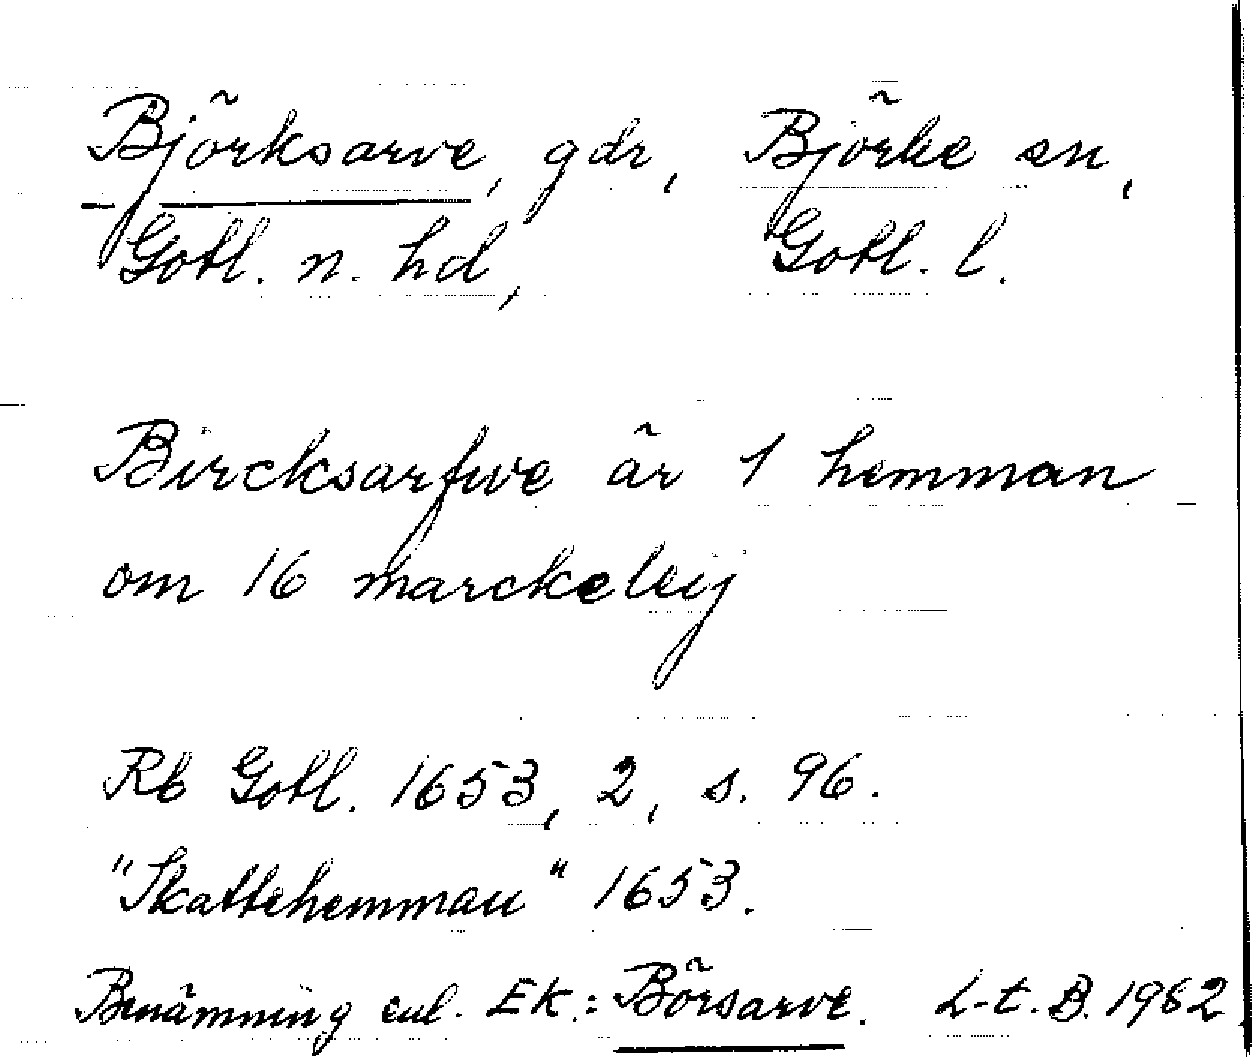 Björksarve, gdr, Björke sn,
Gotl. n. hd, Gotl. l.
Bircksarfwe är 1 hemman
om 16 marckeleij
Rb Gotl. 1653, 2, s. 96.
"Skattehemman" 1653.
Benämning enl. Ek.: Börsarve. L-t. B. 1962